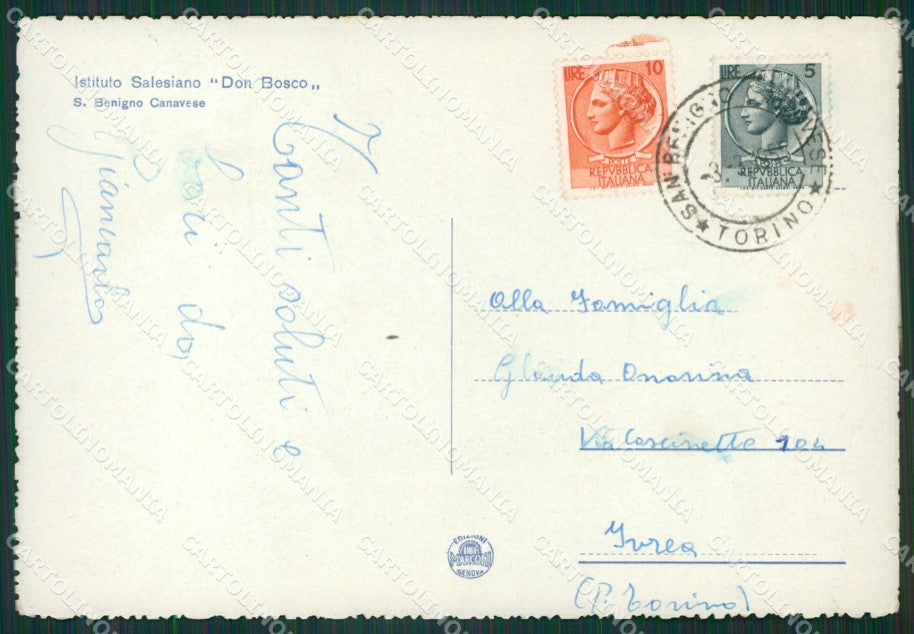 Istituto Salesiano "Don Bosco„
S. Benigno Canavese
Tanti saluti e
baci da,
Giancarlo
LIRE 10
POSTE
REPVBBLICA
ITALIANA
LIRE 5
REPVBBLICA
ITALIANA
SAN BENIGNO CANAVESE
★ TORINO ★
Alla Famiglia
Glauda Onorina
Via Cascinette 104
Ivrea
(P. Torino)
EDIZIONI
MARCONI
GENOVA
CARTOLINOMANIA